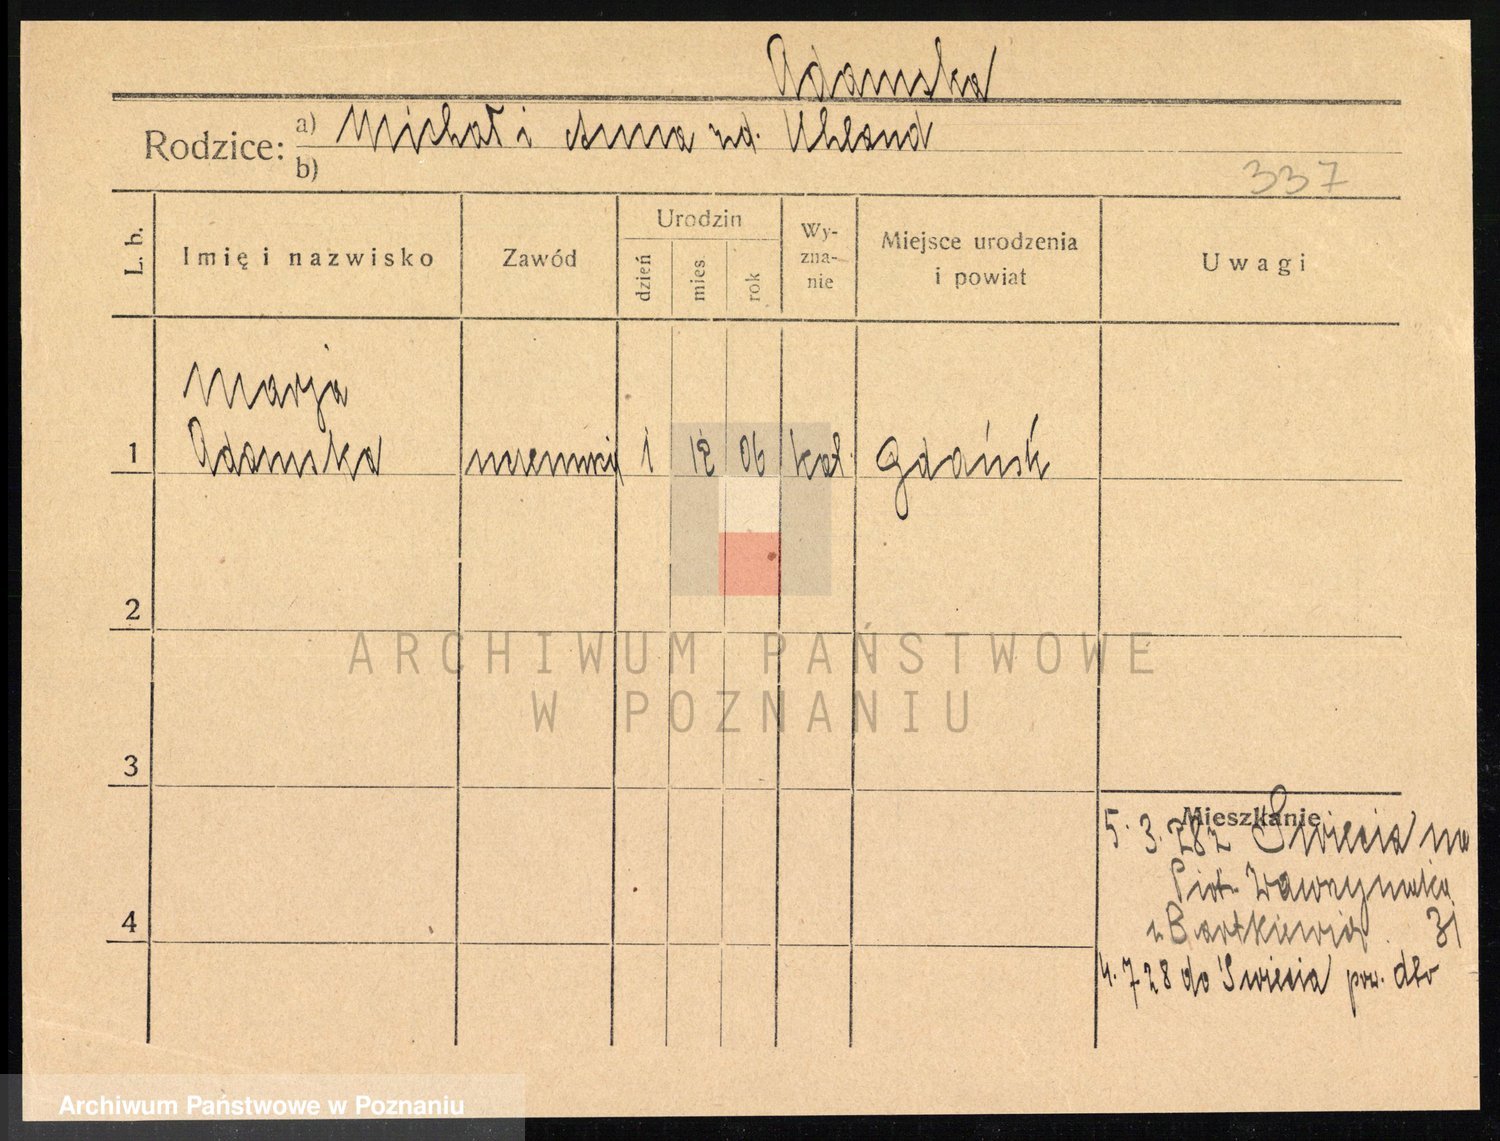 Adamska
Rodzice: a) Michał i Anna zd. Uhland
b)
337
L. b. Imię i nazwisko Zawód Urodzin dzień mies rok Wy-zna-nie Miejsce urodzenia i powiat Uwagi
Marja
1 Adamska 1 12 06 kat. Gdańsk
2
ARCHIWUM PAŃSTWOWE
W POZNANIU
3
Mieszkanie
5. 3. 28 z Swiecia na
Piotr Wawrzyniaka
z Bartkiewicz 31
4
4. 7 28 do Swiecia pow. dto
Archiwum Państwowe w Poznaniu